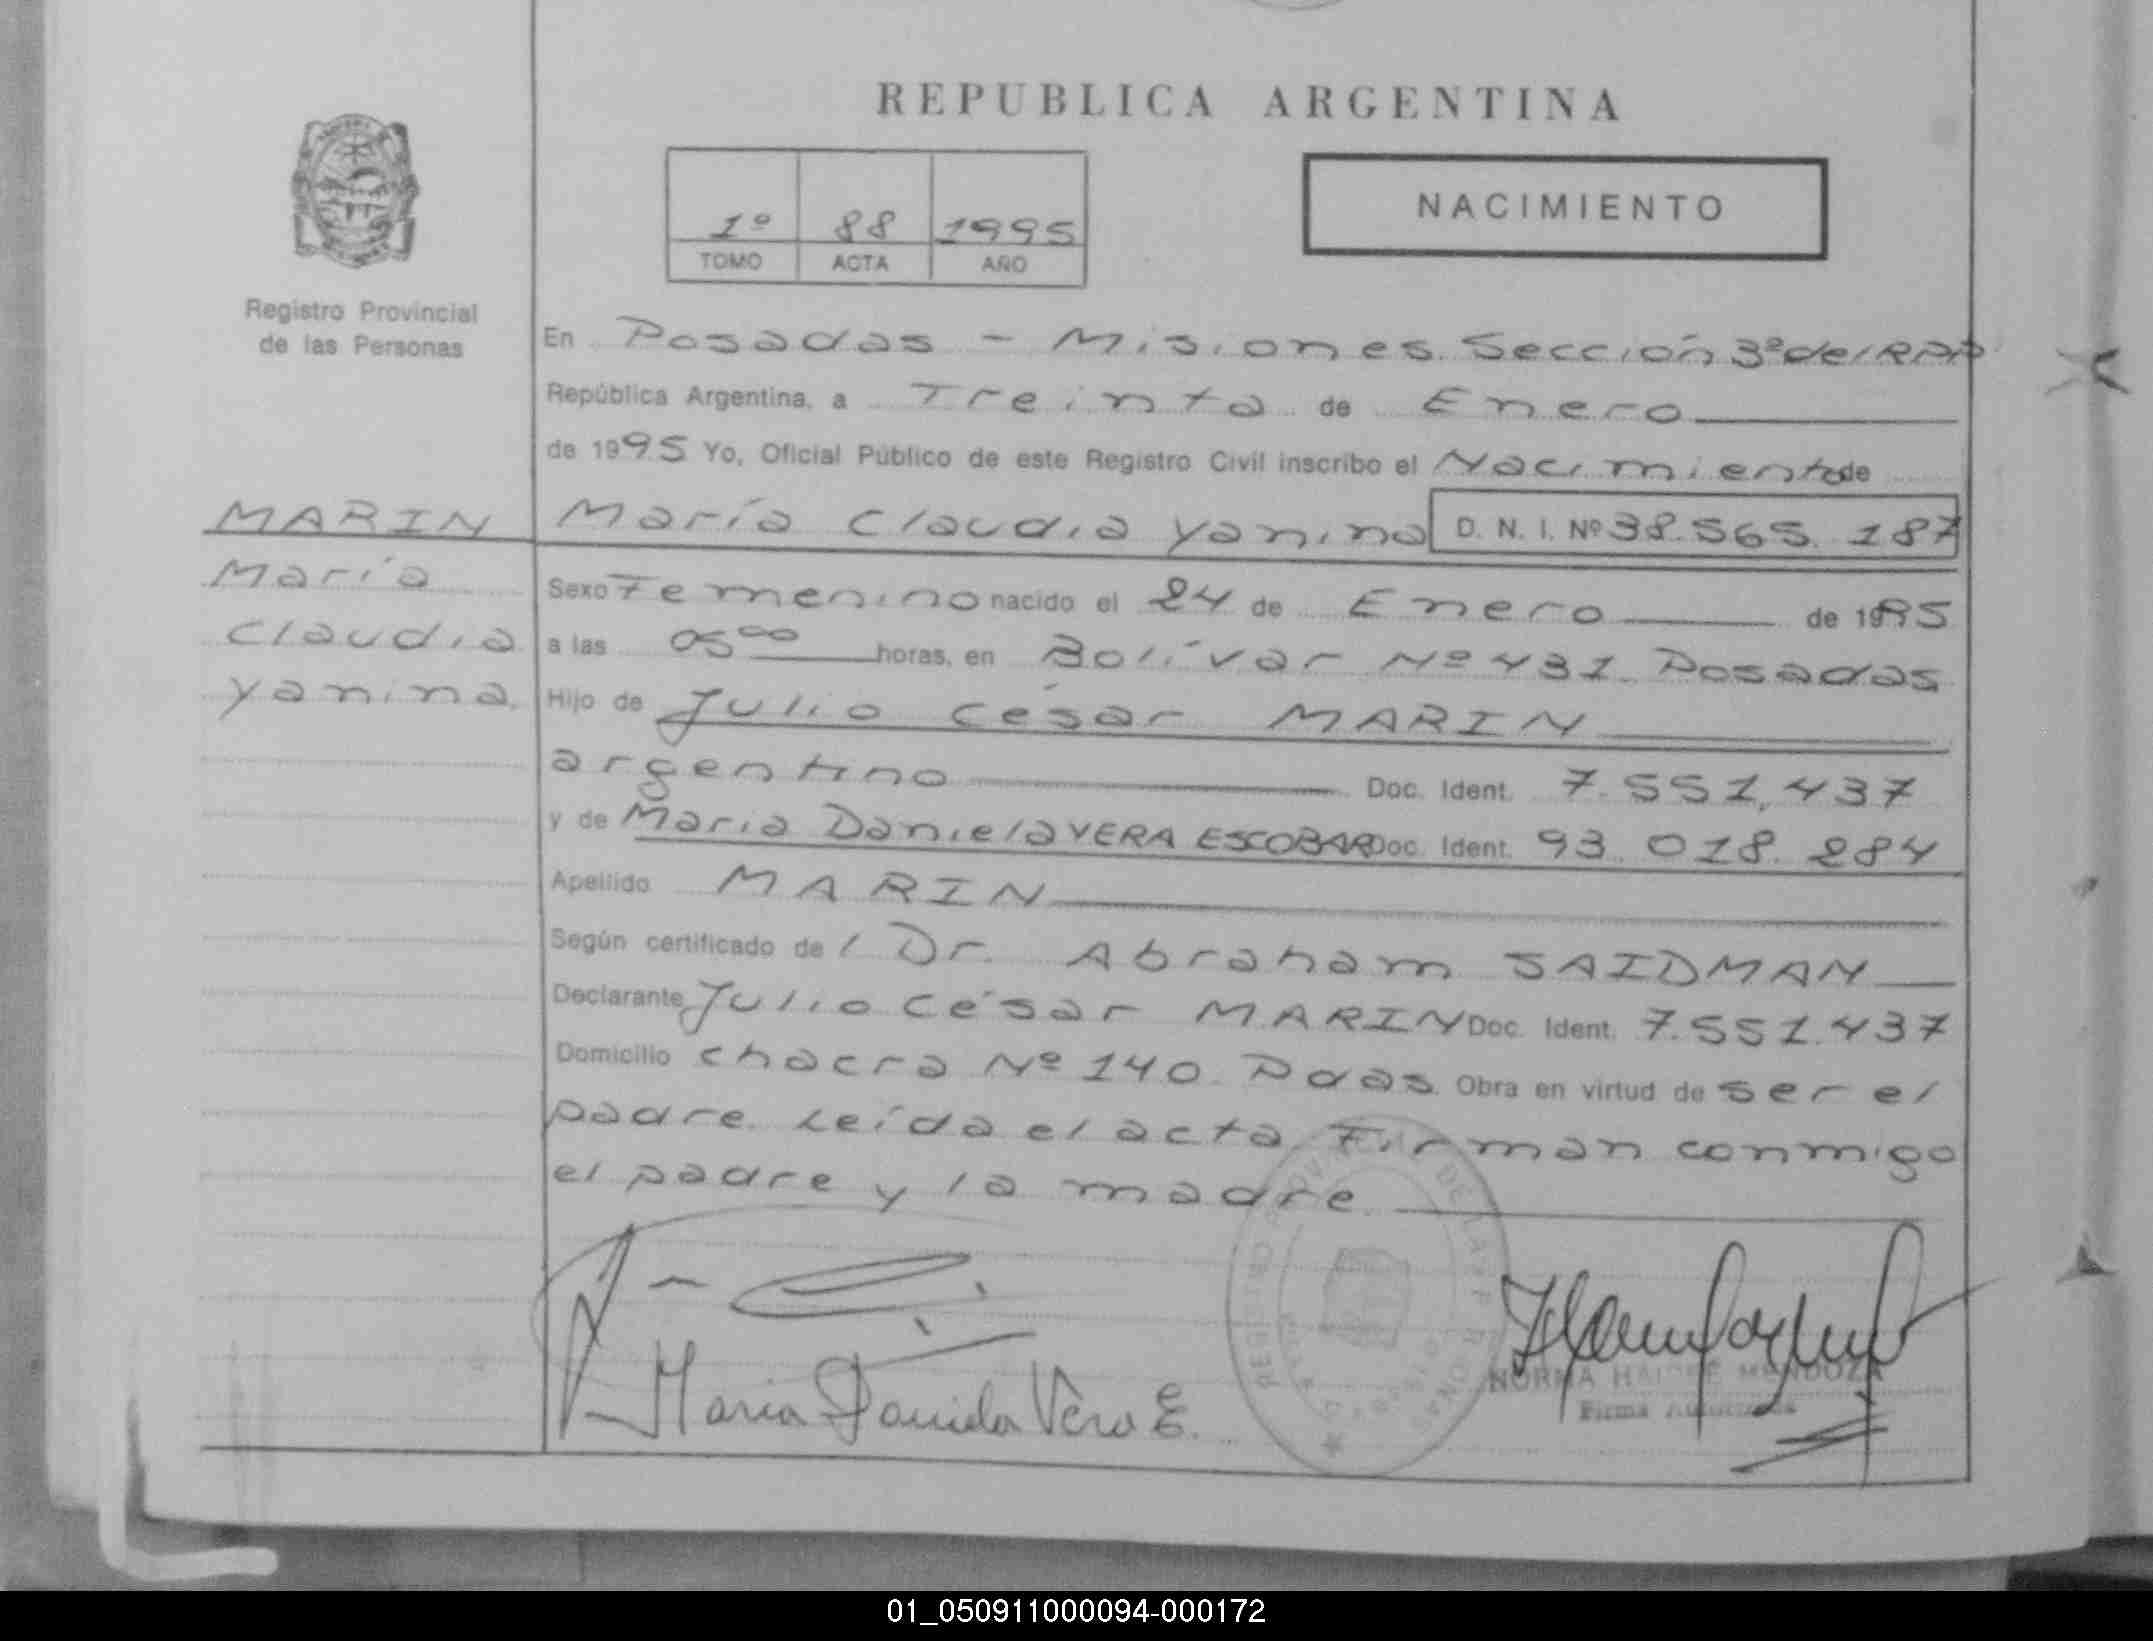 REPUBLICA ARGENTINA
1º 88 1995
TOMO ACTA AÑO
NACIMIENTO
Registro Provincial
de las Personas
En Posadas - Misiones. Sección 3º del RPP
República Argentina, a Treinta de Enero
de 1995 Yo, Oficial Público de este Registro Civil inscribo el Nacimiento de
MARIN
María
Claudia
Yanina.
María Claudia Yanina D. N. I. Nº 38.565.187
Sexo Femenino nacido el 24 de Enero de 1995
a las 05 00 horas, en Bolívar Nº 431. Posadas
Hijo de Julio César MARIN
argentino Doc. Ident. 7.551.437
y de Maria Daniela VERA ESCOBAR Doc. Ident. 93.018.284
Apellido MARIN
Según certificado de l Dr. Abraham SAIDMAN
Declarante Julio César MARIN Doc. Ident. 7.551.437
Domicilio chacra Nº 140. Pdas. Obra en virtud de ser el
padre. Leída el acta Firman conmigo
el padre y la madre
Maria Daniela Vera E.
REGISTRO PROVINCIAL DE LAS
NORMA HAIDEÉ MENDOZA
Firma Autorizada
01_050911000094-000172